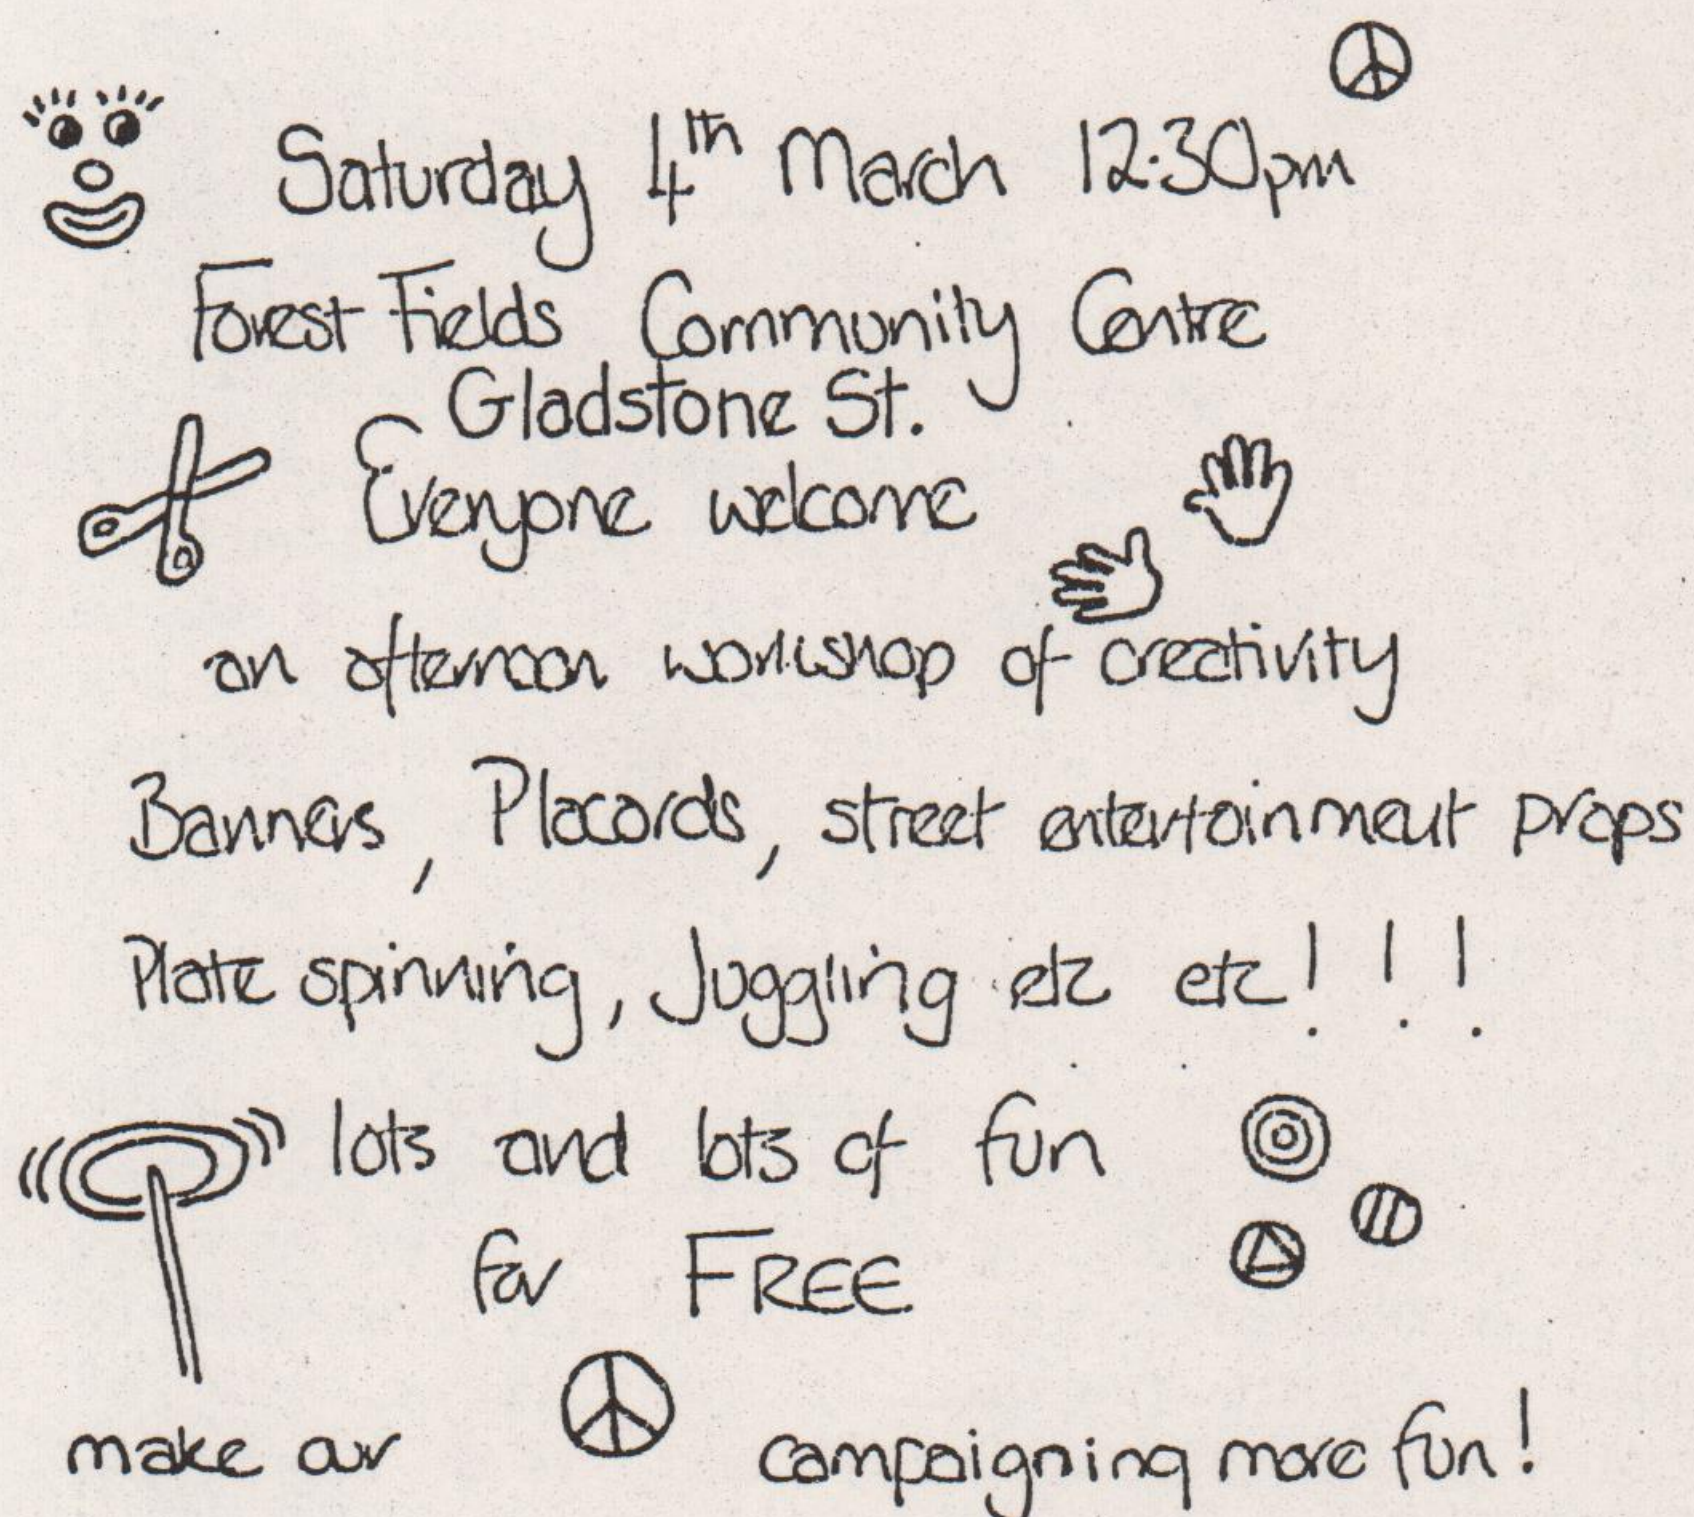 Saturday 4th March 12.30pm
Forest Fields Community Centre
Gladstone St.
Everyone welcome
an afternoon workshop of creativity
Banners, Placards, street entertainment props
Plate spinning, Juggling etc etc!!!
lots and lots of fun
for FREE
make our campaigning more fun!